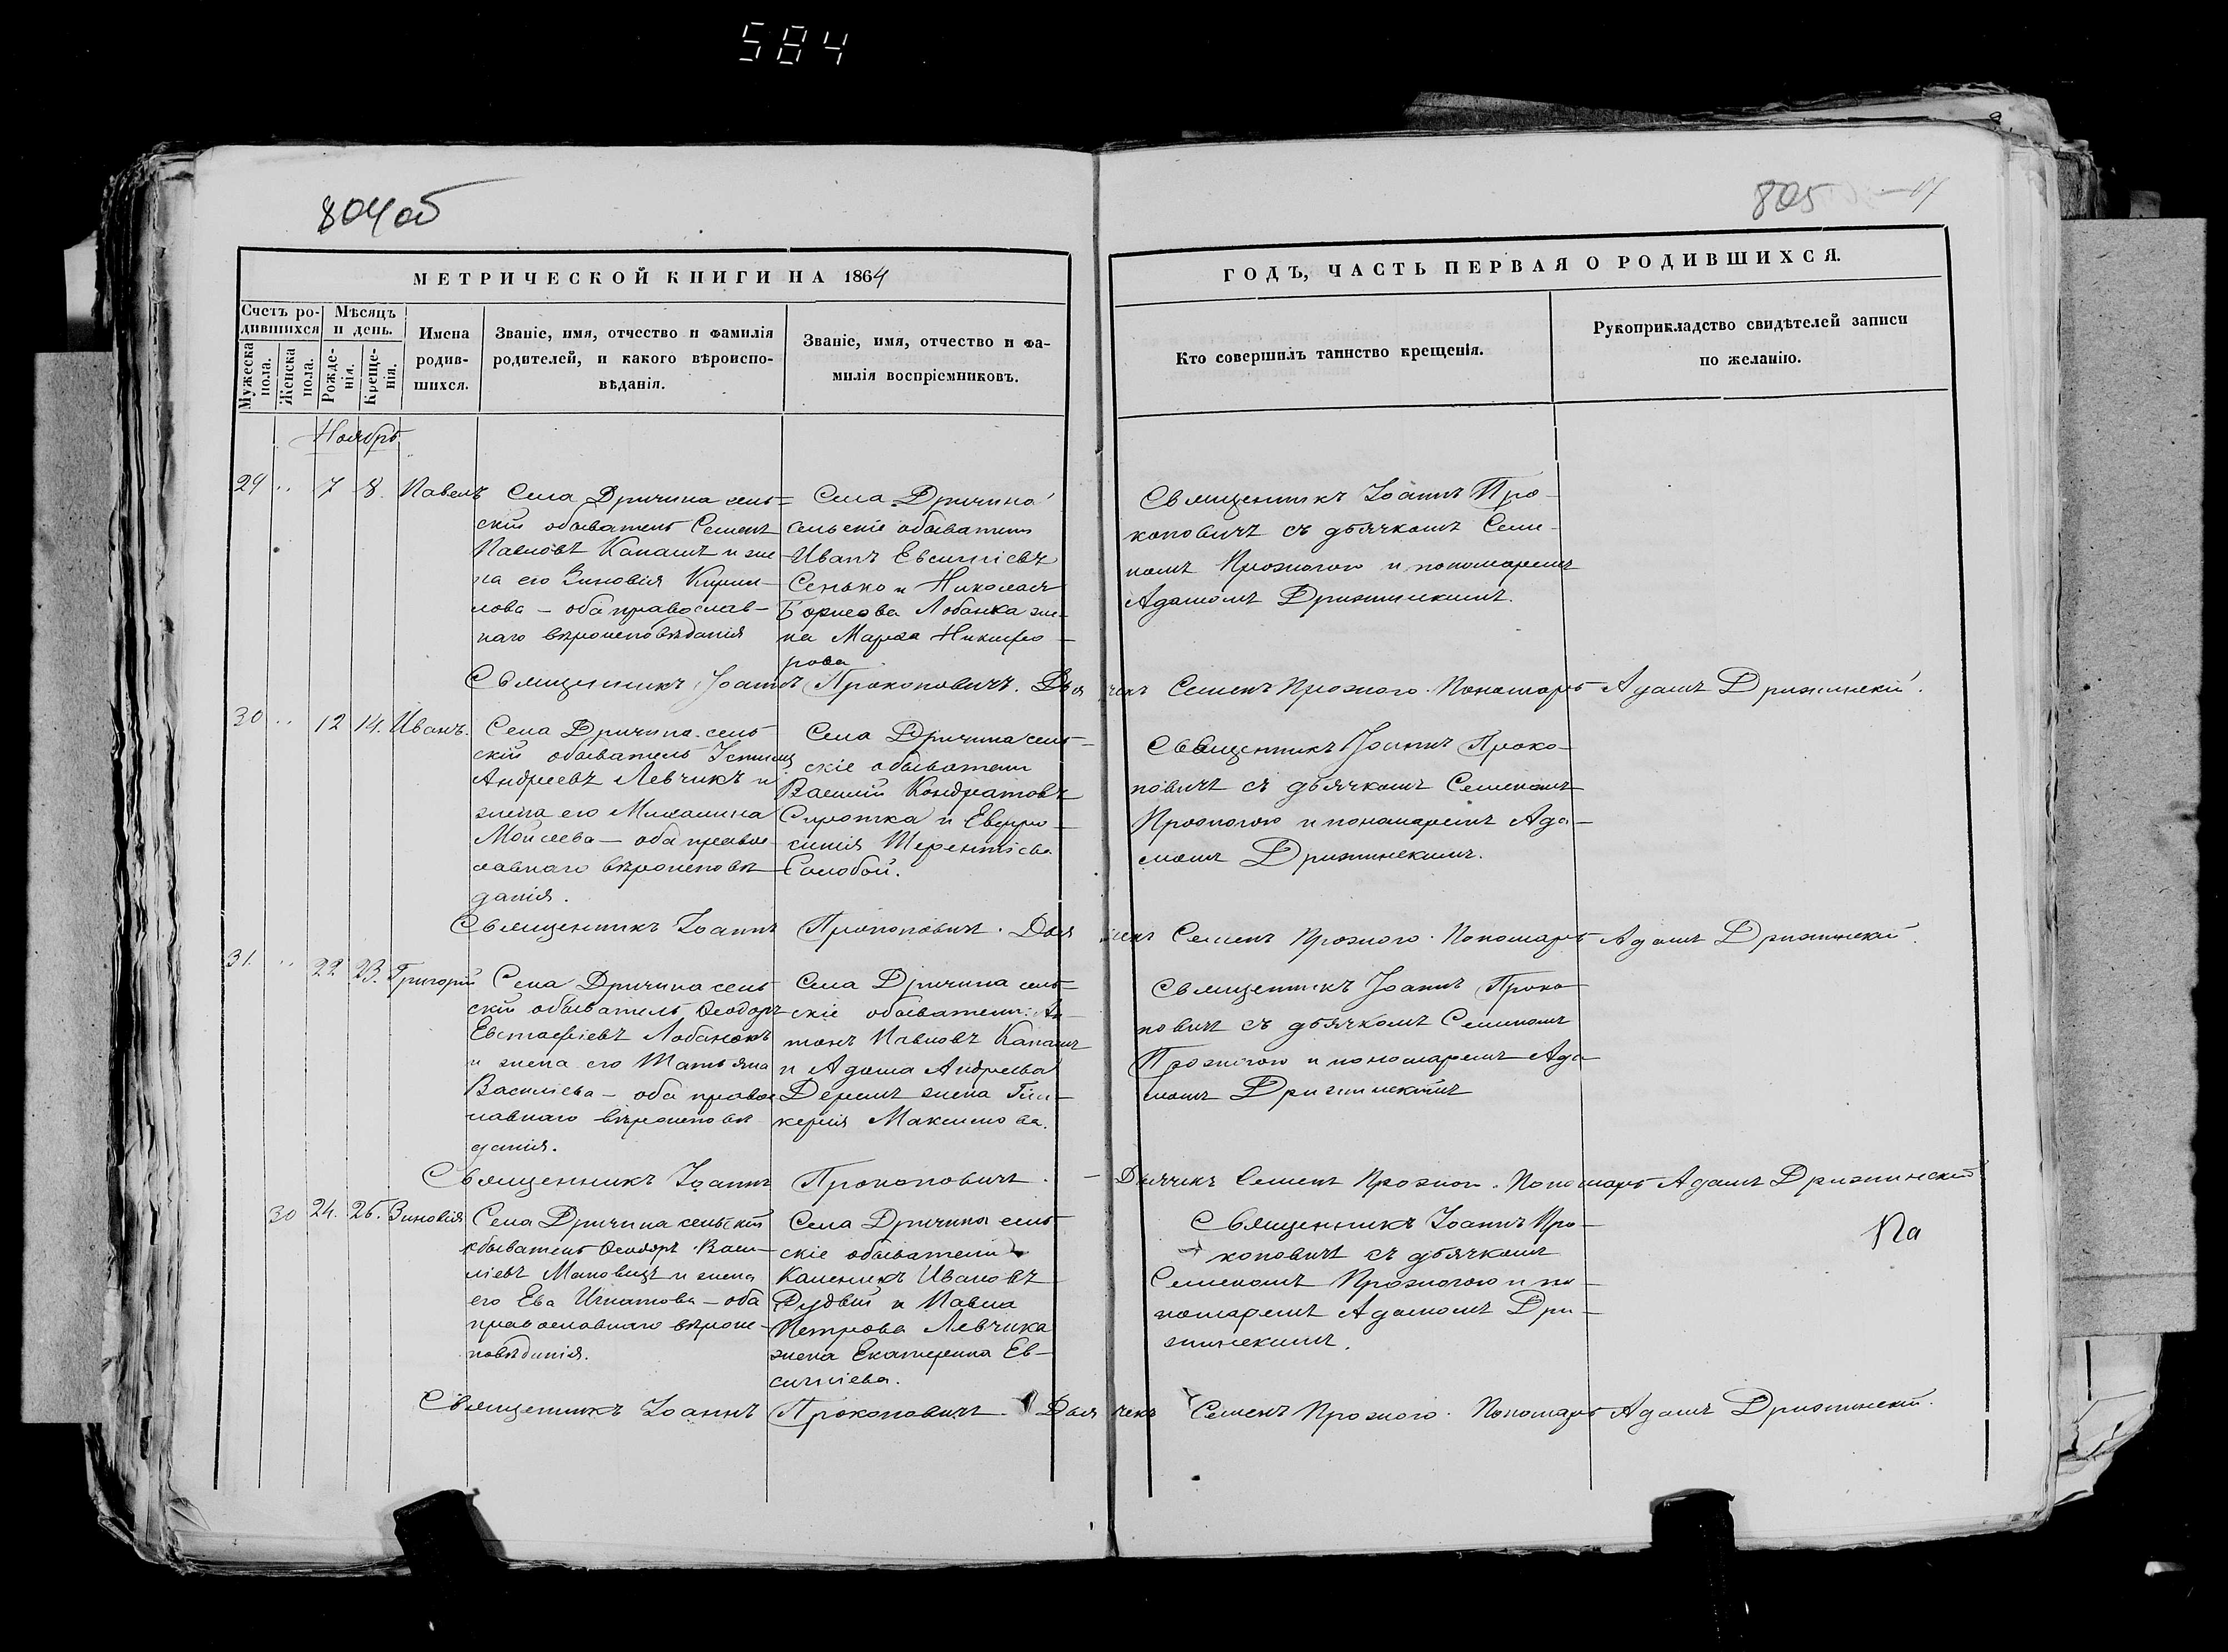 584
804 об
805
МЕТРИЧЕСКОЙ КНИГИ НА 1864
ГОДЪ, ЧАСТЬ ПЕРВАЯ О РОДИВШИХСЯ.
Счетъ ро-
дившихся
Мужеска
пола.
Женска
пола.
Мѣсяцъ
и день.
Рожде-
нія.
Креще-
нія.
Имена
родив-
шихся.
Званіе, имя, отчество и фамилія
родителей, и какого вѣроиспо-
вѣданія.
Званіе, имя, отчество и фа-
милія воспріемниковъ.
Кто совершилъ таинство крещенія.
Рукоприкладство свидѣтелей записи
по желанію.
Ноябрь
29 .. 7 8. Павелъ
Села Дричина сель-
скій обыватель Семенъ
Павловъ Капашъ и же
на его Зиновія Кирил-
лова – оба православ-
наго вѣроисповѣданія
Села Дричина
сельскіе обыватели
Иванъ Евсигніевъ
Сенько и Николая
Борисова Лобанка же-
на Марѳа Никифо-
рова
Священникъ Іоаннъ Про-
коповичъ съ дьячкомъ Семе-
номъ Прожогою и пономаремъ
Адамомъ Дрижинскимъ.
Священникъ Іоаннъ Прокоповичъ. Дьячекъ Семенъ Прожого. Пономарь Адамъ Дрижинскій.
30 .. 12 14. Иванъ.
Села Дричина сель
скій обыватель
Андреевъ Левчикъ и
жена его Михалина
Мойсеева – оба правос-
лавнаго вѣроисповѣ
данія.
Села Дричина сель-
скіе обыватели
Василій Кондратовъ
Сиротка и Евфро-
синія Терентіева
Солобой.
Священникъ Іоаннъ Проко-
повичъ съ дьячкомъ Семеномъ
Прожогою и пономаремъ Ада-
момъ Дрижинскимъ.
Священникъ Іоаннъ Прокоповичъ. Дьячекъ Семенъ Прожого. Пономарь Адамъ Дрижинскій.
31. .. 22 23. Григорій
Села Дричина сель
скій обыватель Ѳеодоръ
Евстафіевъ Лобанокъ
и жена его Татьяна
Василіева – оба правос
лавнаго вѣроисповѣ
данія.
Села Дричина сель-
скіе обыватели: Ан-
тонъ Павловъ Капашъ
и Адама Андреева
Деремъ жена Гли-
керія Максимова.
Священникъ Іоаннъ Проко-
повичъ съ дьячкомъ Семеномъ
Прожогою и пономаремъ Ада
момъ Дрижинскимъ
Священникъ Іоаннъ Прокоповичъ. – Дьячекъ Семенъ Прожого. Пономарь Адамъ Дрижинскій
30 24. 26. Зиновія
Села Дричина сельскій
обыватель Ѳеодоръ Васи-
ліевъ Маковецъ и жена
его Ева Игнатова – оба
православнаго вѣроис-
повѣданія.
Села Дричина сель
скіе обыватели
Каленикъ Ивановъ
Рудвій и Павла
Петрова Левчика
жена Екатерина Ев-
сигніева.
Священникъ Іоаннъ Про-
коповичъ съ дьячкомъ
Семеномъ Прожогою и по-
номаремъ Адамомъ Дри-
жинскимъ.
Священникъ Іоаннъ Прокоповичъ. Дьячекъ Семенъ Прожого. Пономарь Адамъ Дрижинскій.